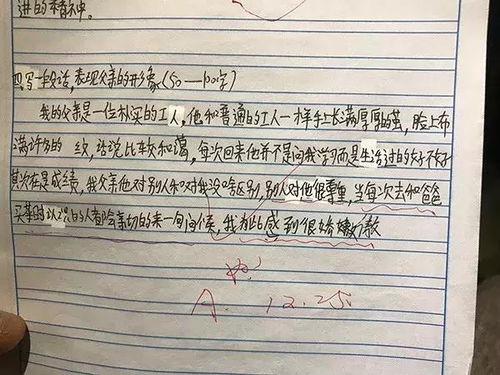 进的精神。
四.写一段话,表现父亲的形象(50—100字)
我的父亲是一位朴实的工人,他和普通的工人一样手上长满厚厚的茧,脸上布
满汗的 纹,话说比较和蔼,每次回来他并不是问我学习而是生活过的好不好
其次在是成绩,我父亲他对别人和对我没啥区别,别人对他很尊重,当每次去和爸爸
买菜时认识的人都会亲切的来一句问候,我为此感到很骄傲
A. 12.25